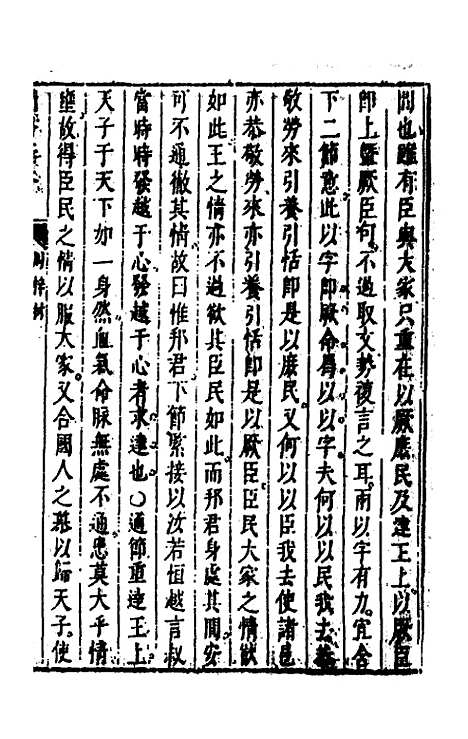 間也雖有臣與大家只重在以厥庶民及達王上以厥臣
即上曁厥臣句不過取文勢復言之耳兩以字有力宜合
下二節意此以字即厥命得以以字夫何以以民我去養
敬勞來引養引恬即是以庶民又何以以臣我去使諸邑
亦恭敬勞來亦引養引恬即是以厥臣臣民大家之情猷
如此王之情亦不過欲其臣民如此而邦君身處其間安
可不通徹其情故曰惟邦君下節緊接以汝若恒越言叔
當時時發越于心發越于心者求達也○通節重達王上
天子于天下如一身然血氣命脉無處不通患莫大乎情
壅故得臣民之情以服大家又合國人之慕以歸天子使